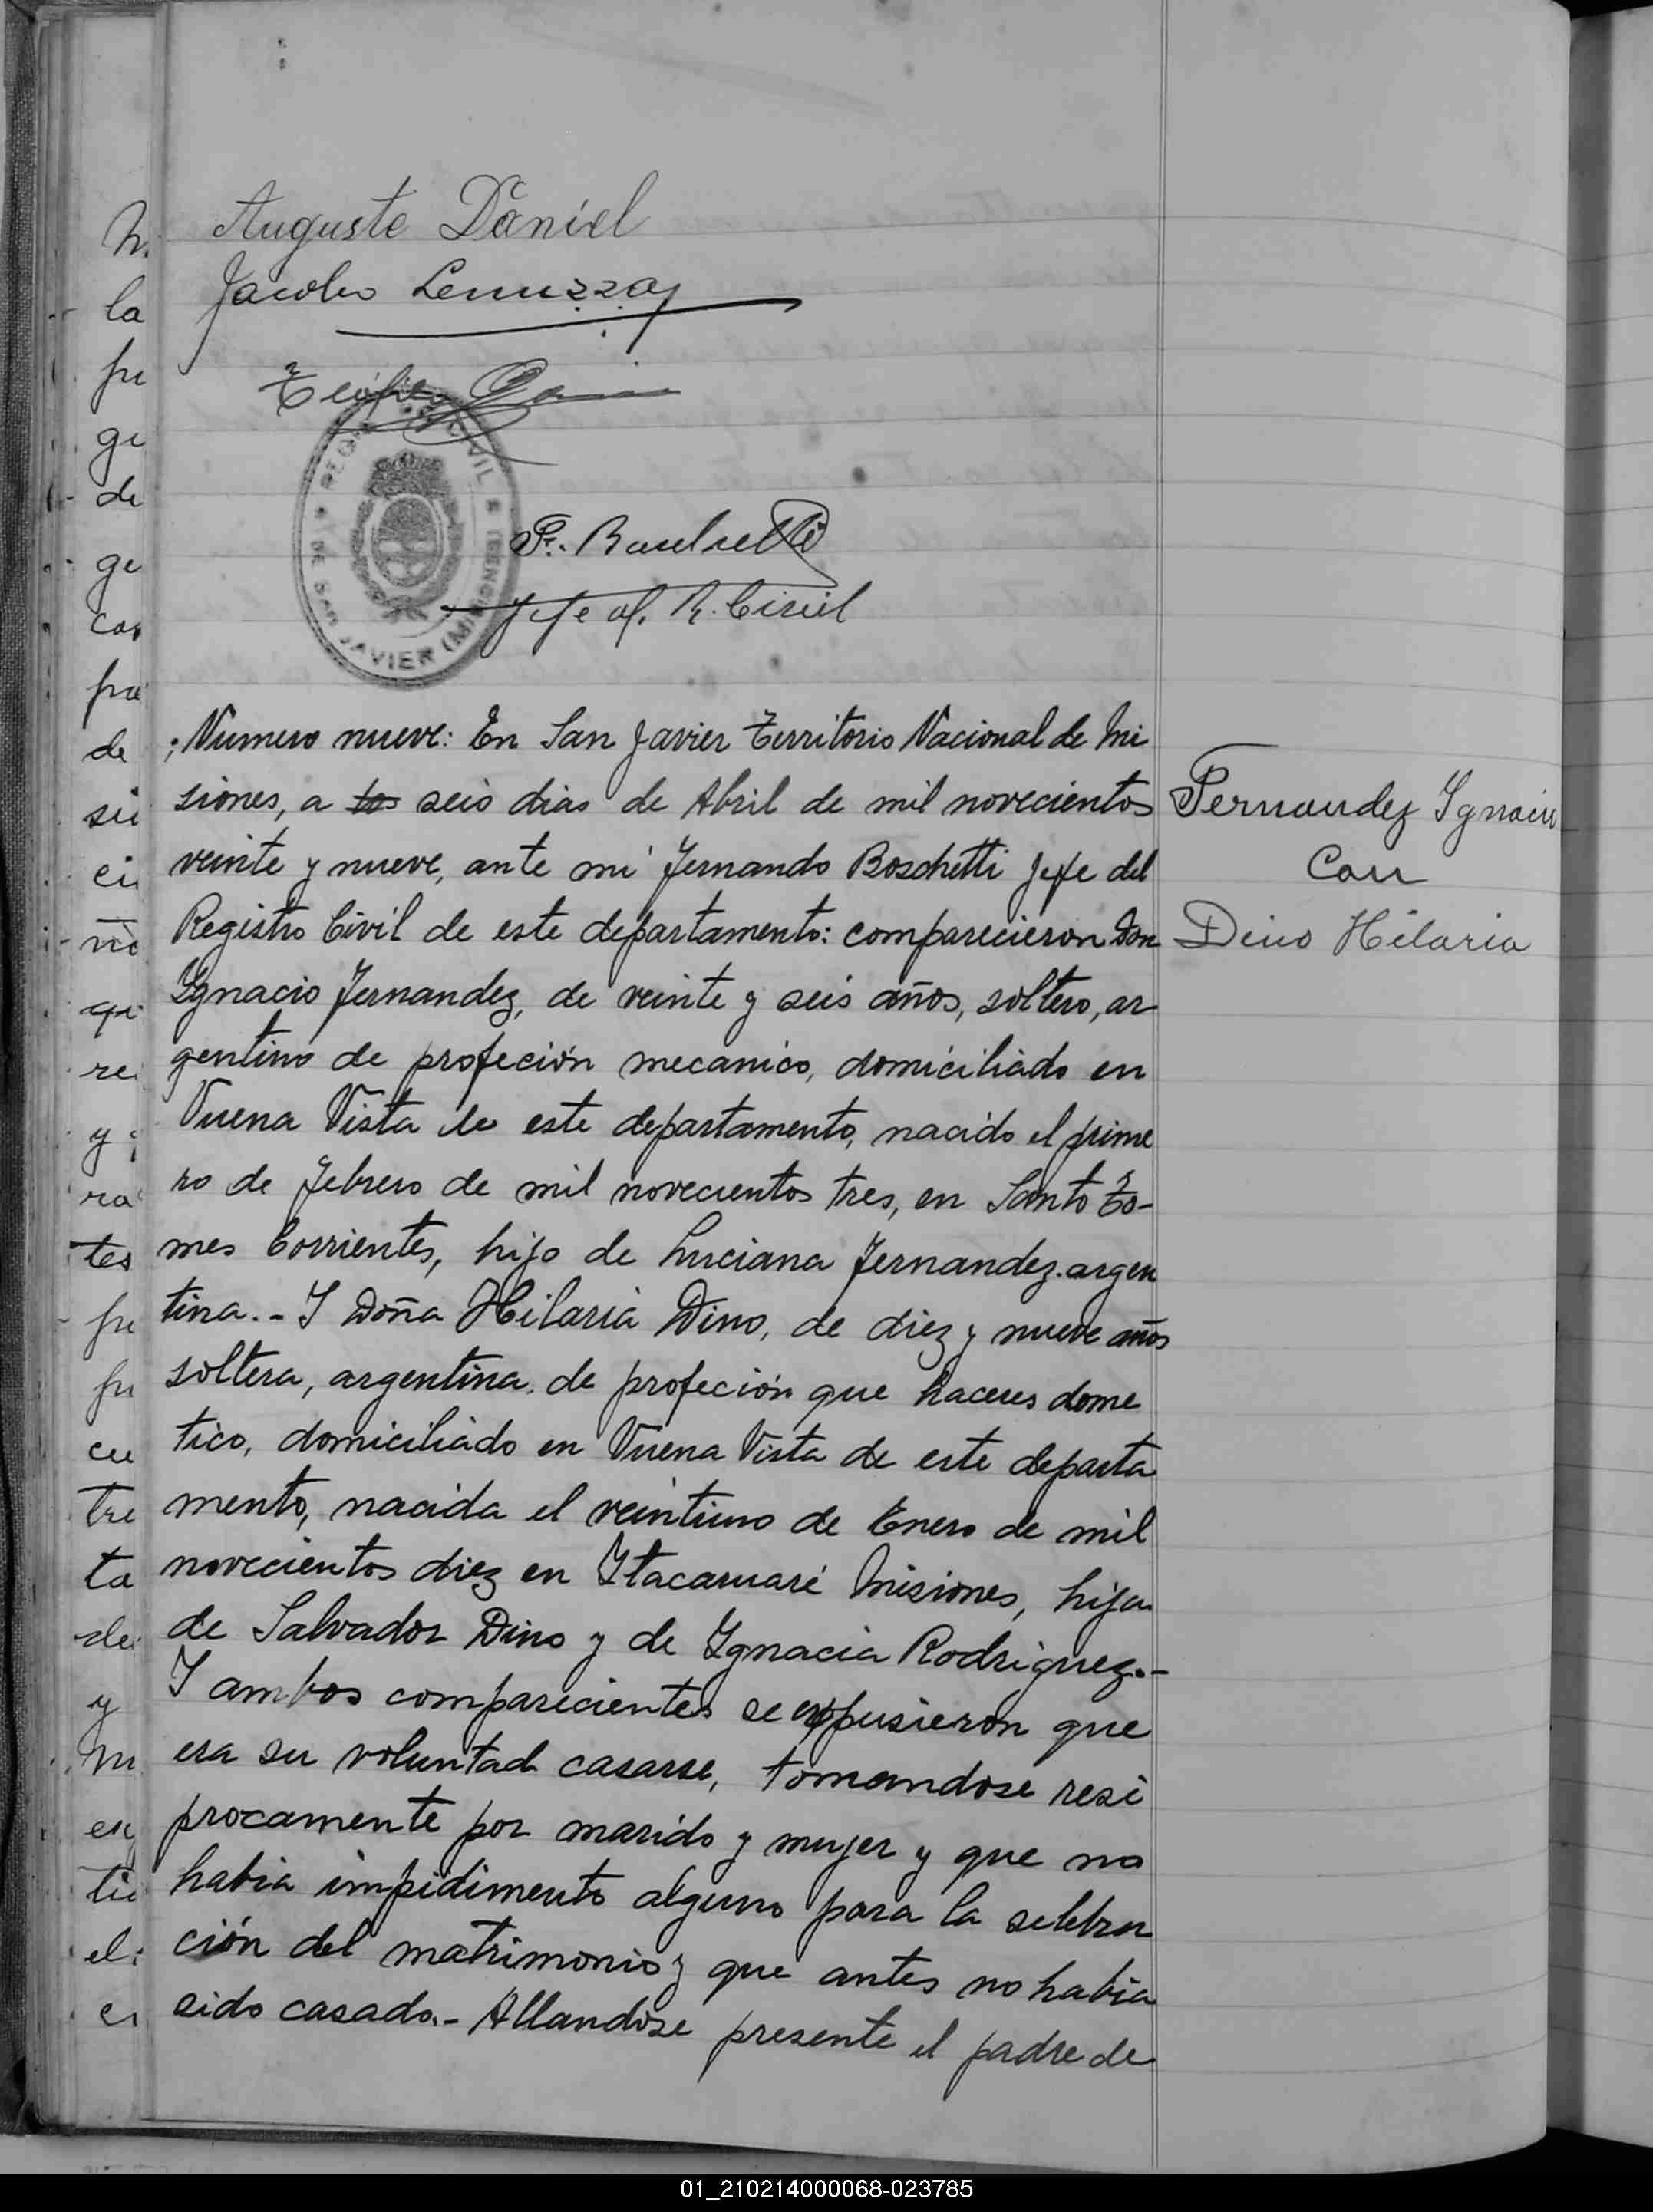 Auguste Daniel
Jacobo Lenuzza
F. Boschetti
Jefe of. R. Civil
REGISTRO CIVIL
DE SAN JAVIER (MISIONES)
Numero nueve: En San Javier Territorio Nacional de Mi
siones, a los seis dias de Abril de mil novecientos
veinte y nueve, ante mi Fernando Boschetti Jefe del
Registro Civil de este departamento: comparecieron Don
Ygnacio Fernandez, de veinte y seis años, soltero, ar
gentino de profeción mecanico, domiciliado en
Vuena Vista de este departamento, nacido el prime
ro de Febrero de mil novecientos tres, en Santo To-
mes Corrientes, hijo de Luciana Fernandez. argen
tina.- Y Doña Hilaria Dino, de diez y nueve años
soltera, argentina. de profeción que haceres dome
tico, domiciliado en Vuena Vista de este departa
mento, nacida el veintiuno de Enero de mil
novecientos diez en Itacaruaré Misiones, hija
de Salvador Dino y de Ygnacia Rodriguez.-
Y ambos comparecientes se expusieron que
era su voluntad casarse, tomandose resi
procamente por marido y mujer y que no
habia impidimento alguno para la selebra
ción del matrimonio y que antes no habia
sido casado.- Allandose presente el padre de
Fernandez Ygnacio
Con
Dino Hilaria
la
ge
de
ge
de
y
tes
cu
tre
ta
y
01_210214000068-023785